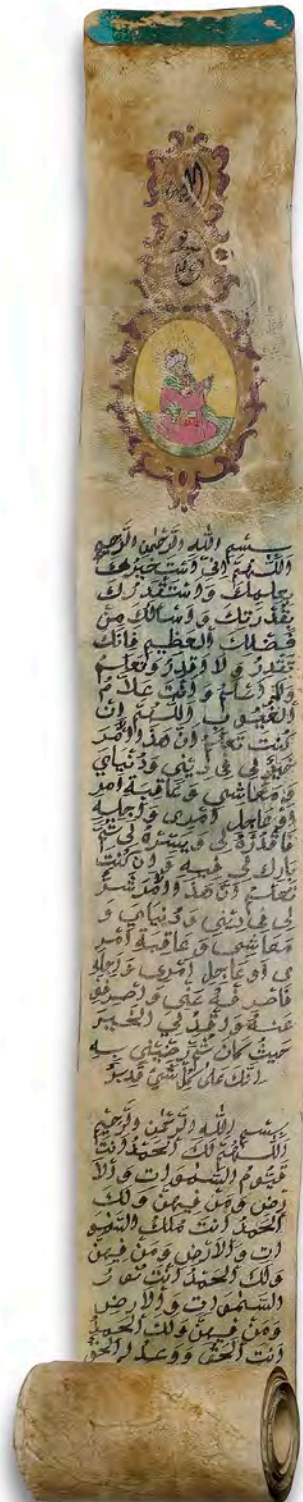 بسم الله الرحمن الرحيم
اللهم اني استخيرك
بعلمك واستقدرك
بقدرتك واسالك من
فضلك العظيم فانك
تقدر ولا اقدر وتعلم
ولا اعلم وانت علام
الغيوب اللهم ان
كنت تعلم ان هذا الامر
خير لي في ديني ودنياي
ومعاشي وعاقبة امر
او عاجل امري واجله
فاقدره لي ويسره لي ثم
بارك لي فيه وان كنت
تعلم ان هذا الامر شر
لي في ديني ودنياي و
معاشي وعاقبة امر
ي او عاجل امري واجله
فاصرفه عني واصرفني
عنه واقدر لي الخير
حيث كان ثم رضيني به
انك على كل شي قدير
بسم الله الرحمن الرحيم
اللهم لك الحمد انت
قيوم السموات والا
رض ومن فيهن ولك
الحمد انت ملك السمو
ات والارض ومن فيهن
ولك الحمد انت نور
السموات والارض
ومن فيهن ولك الحمد
انت الحق ووعدك الحق